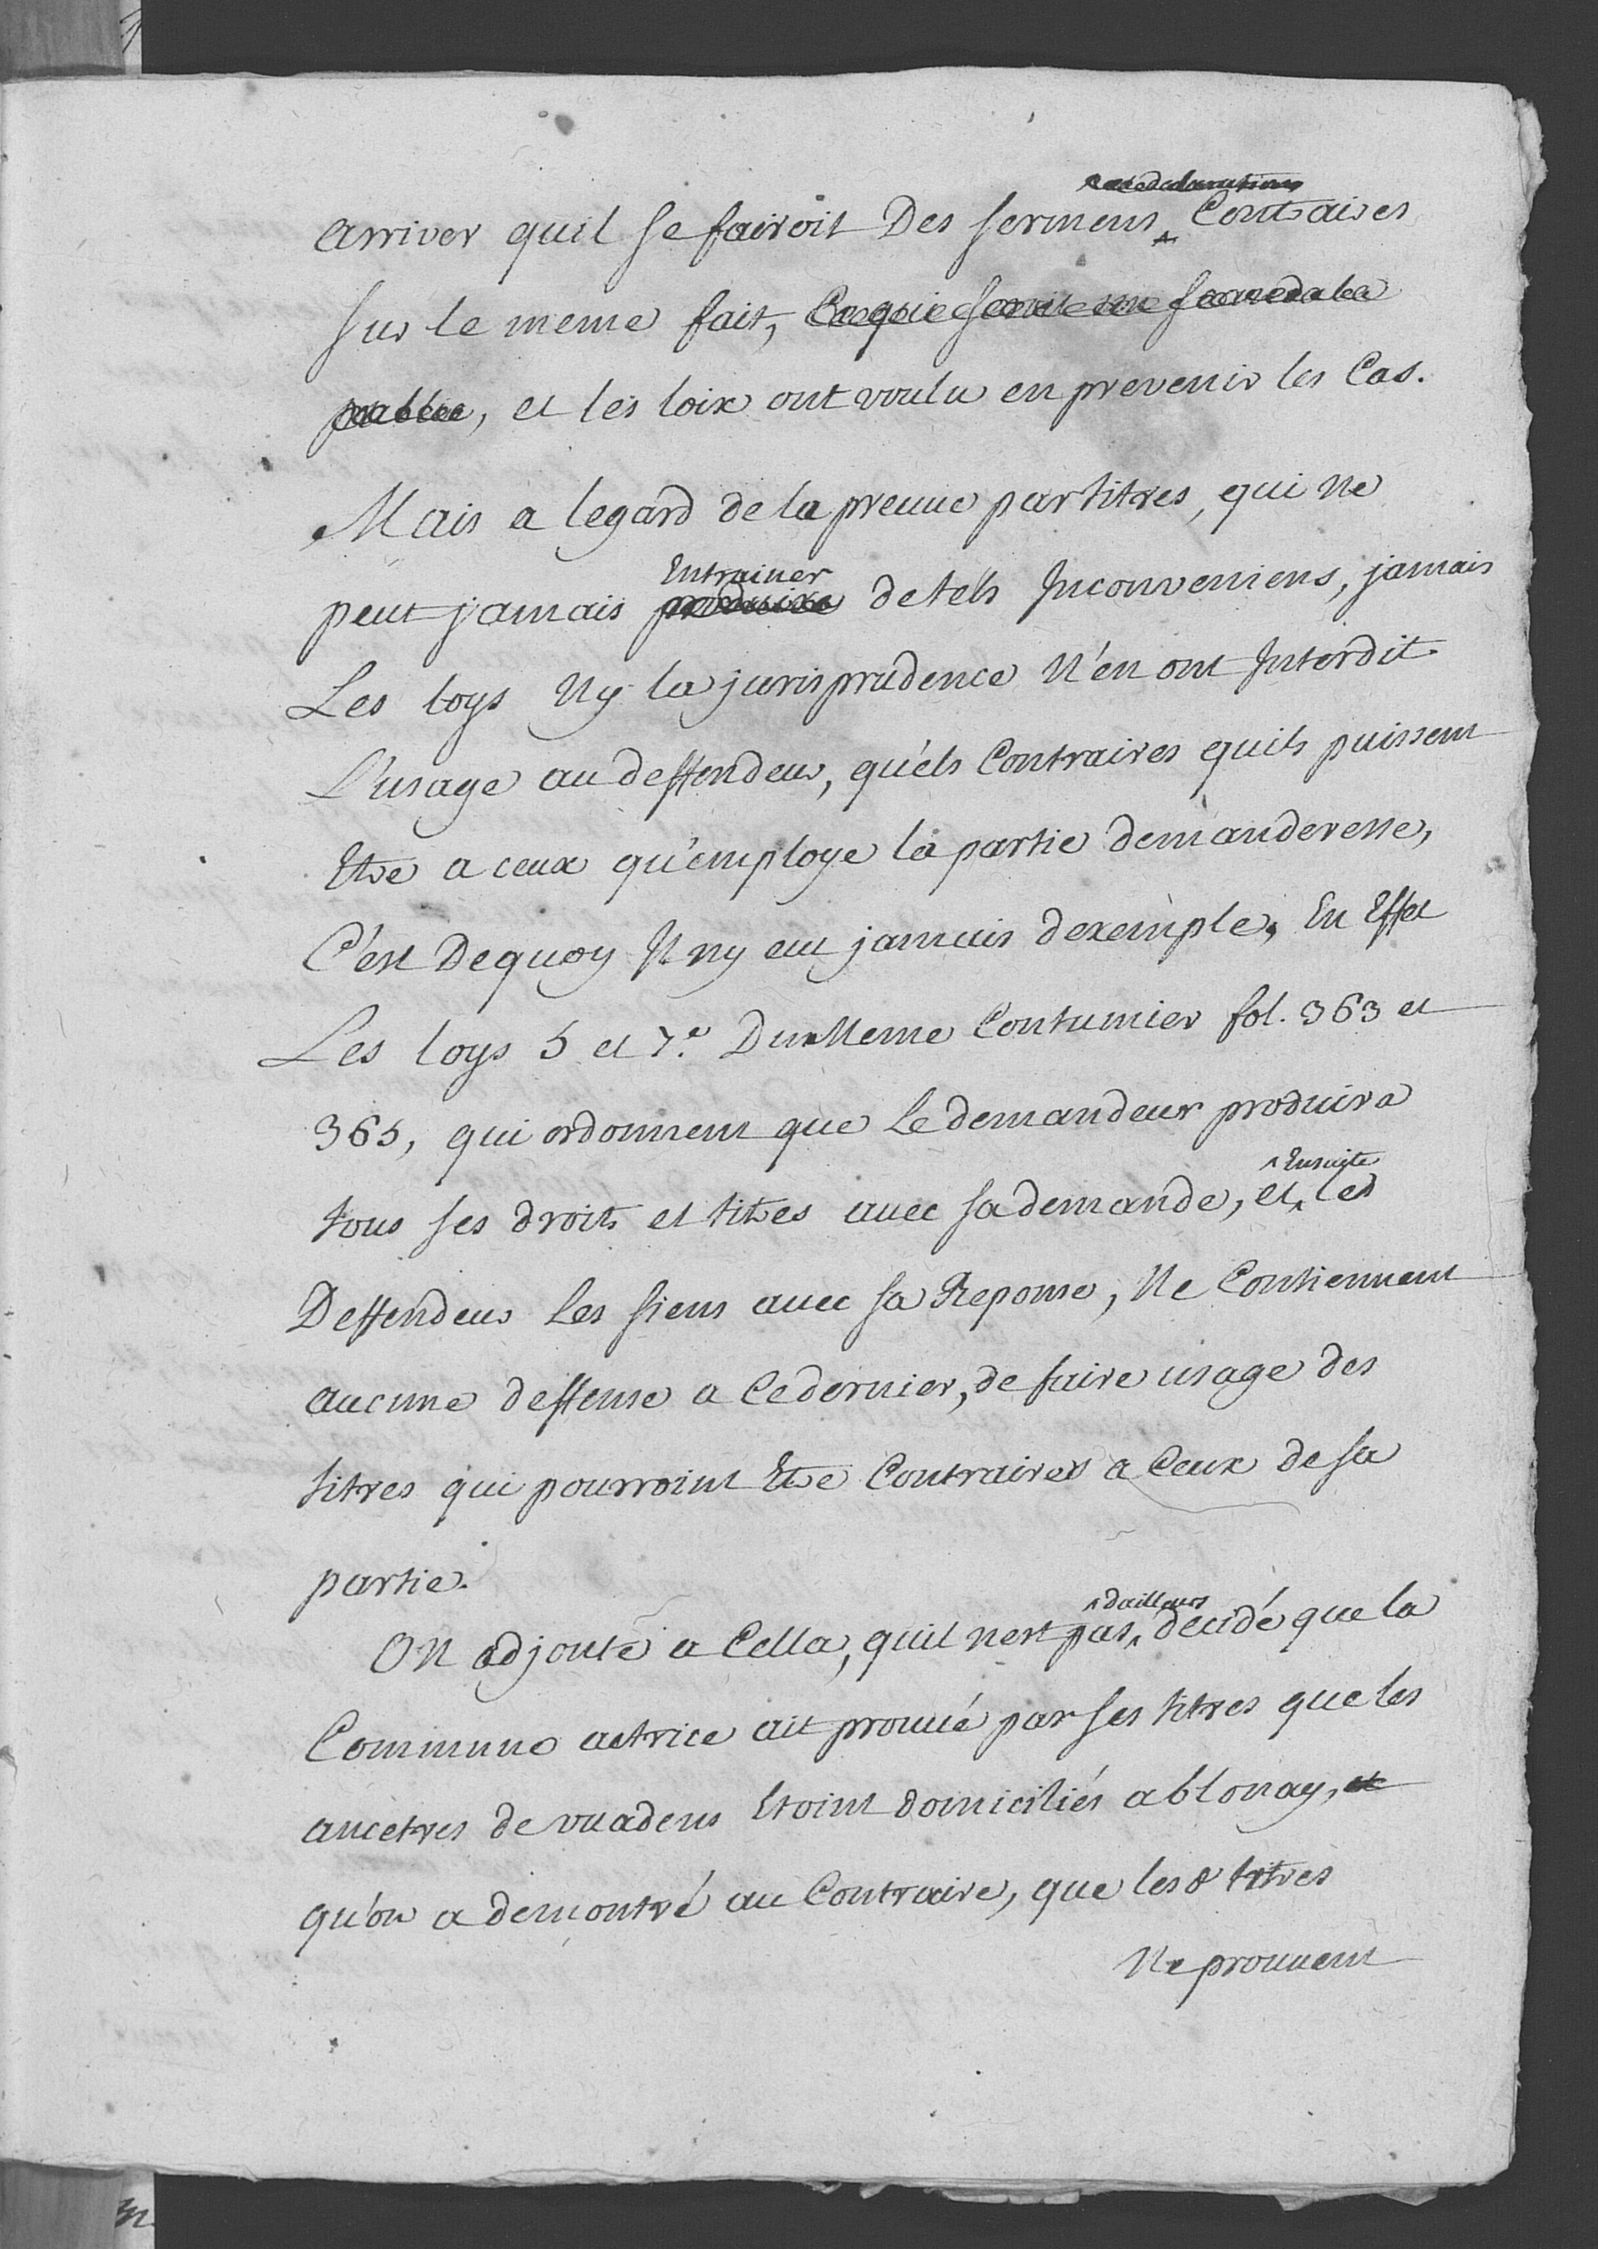 arriver quil se fairoit Des sermens Contraires
sur le meme fait, Ce qui seroit un scandale
public, et les loix ont voulu en prevenir les Cas.
Mais a legard de la preuve par titres, qui ne
Entrainer
peut jamais produire de tels Inconveniens, jamais
Les loys Ny la jurisprudence N'en ont Interdit
L'usage au deffendeur, quels Contraires quils puissent
Etre a ceux qu'employe la partie demanderesse,
C'est Dequoy Il ny eut jamais dexemple, En Effet
Les loys 5 et 7.e Du Meme Coutumier fol. 363 et
365, qui ordonnent que Le demandeur produira
Ensuite
tous ses droits et titres avec sa demande, et les
Deffendeur Les siens avec sa Reponse, Ne Contiennent
aucune deffense a Ce dernier, de faire usage des
titres qui pourroint Etre Contraires a Ceux de sa
partie.
dailleurs
On adjoute a Cella, quil nest pas decidé que la
Commune actrice ait prouvé par ses titres que les
ancetres de vuadens Etoint domiciliés a blonay, et
qu'on a demontré au Contraire, que les 8 titres
Ne prouvent